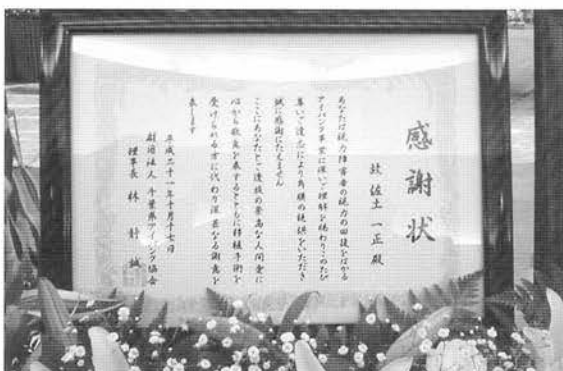 感謝状
故佐土一正殿
あなたは視力障害者の視力の回復をはかる
アイバンク事業に深いご理解を賜わりこのたび
尊いご遺志により角膜の提供をいただき
誠に感謝にたえません
ここにあなたとご遺族の崇高な人間愛に
心から敬意を表するとともに移植手術を
受けられる方に代わり深甚なる謝意を
表します
平成二十一年十月十七日
財団法人 千葉県アイバンク協会
理事長 林 誠